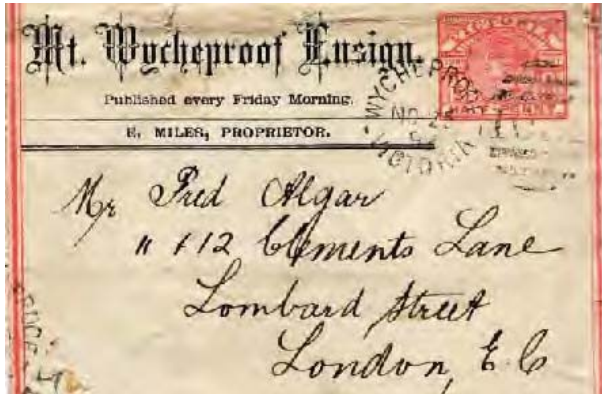 Mt. Wycheproof Ensign.
Published every Friday Morning.
E. MILES, PROPRIETOR.
VICTORIA
PENNY
WYCHEPROOF
NO 25
VICTORIA
Mr Fred Algar
11 & 12 Clements Lane
Lombard Street
London, E.C